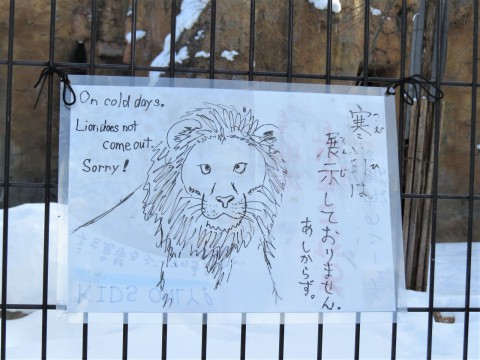 On cold days.
Lion does not
come out.
Sorry!
寒い日は
展示しておりません。
あしからず。
KIDS ONLY!